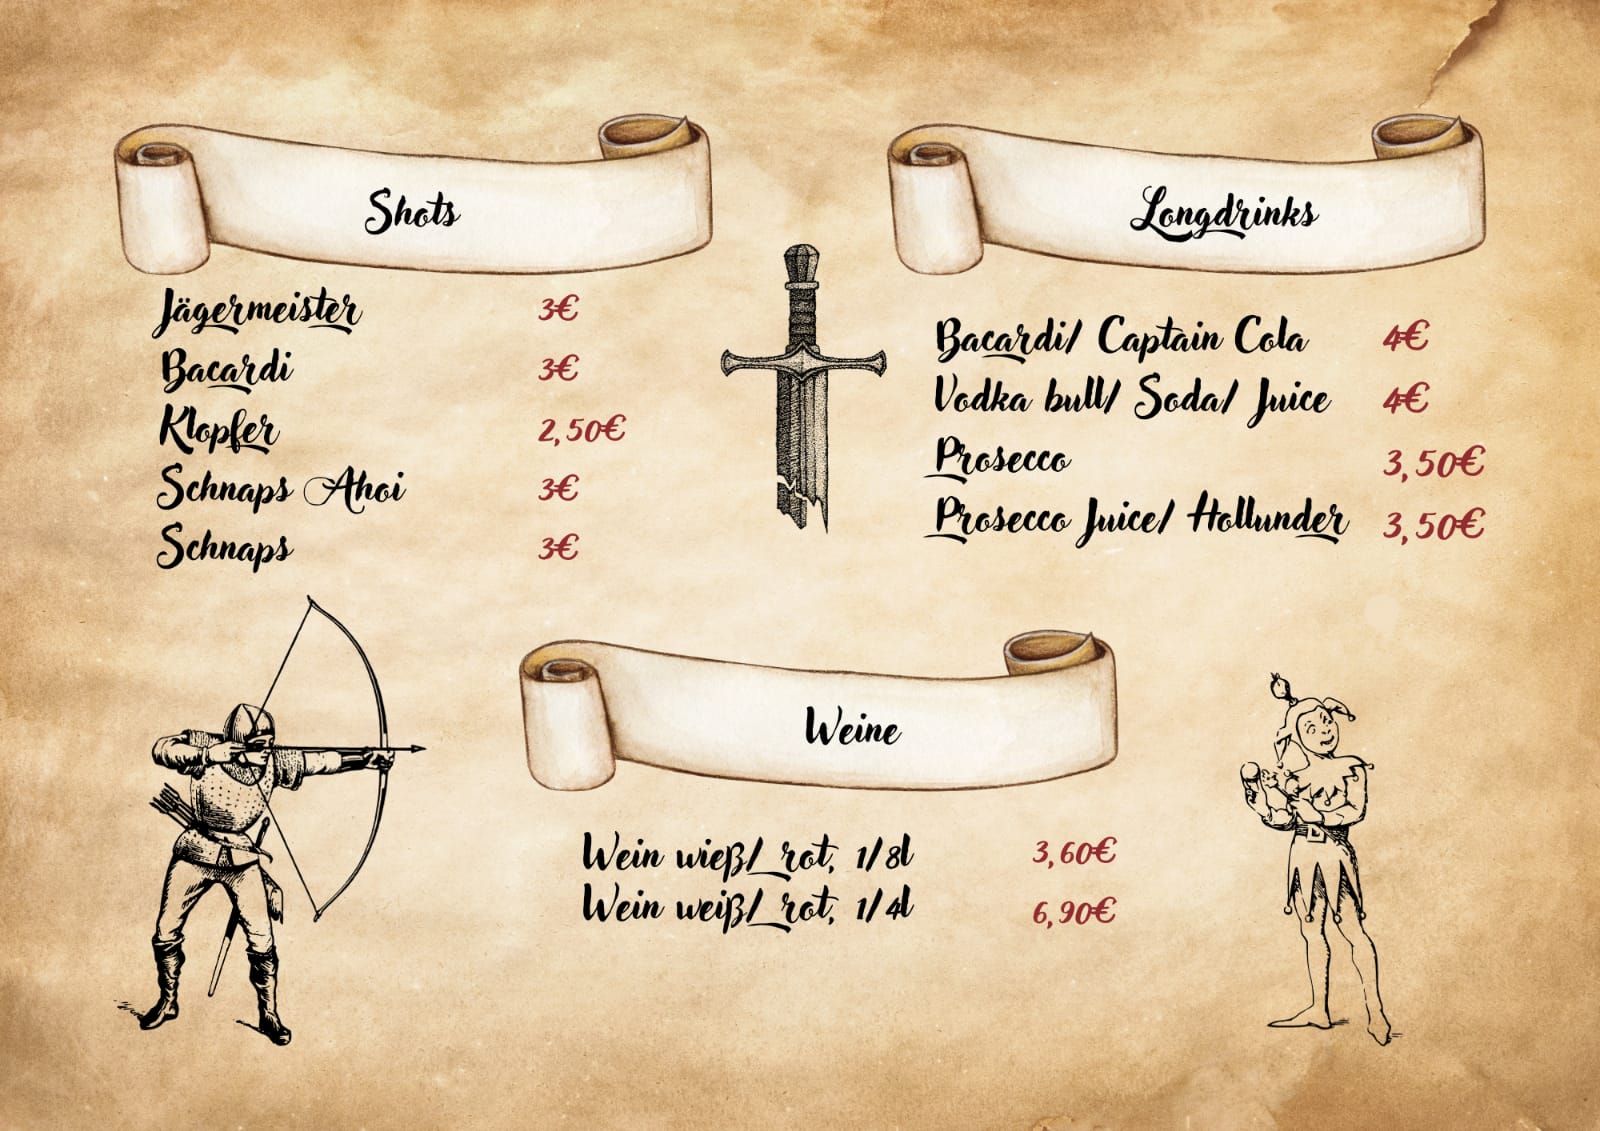 Shots
Jägermeister 3€
Bacardi 3€
Klopfer 2,50€
Schnaps Ahoi 3€
Schnaps 3€
Longdrinks
Bacardi/ Captain Cola 4€
Vodka bull/ Soda/ Juice 4€
Prosecco 3,50€
Prosecco Juice/ Hollunder 3,50€
Weine
Wein wieß/ rot, 1/8l 3,60€
Wein weiß/ rot, 1/4l 6,90€